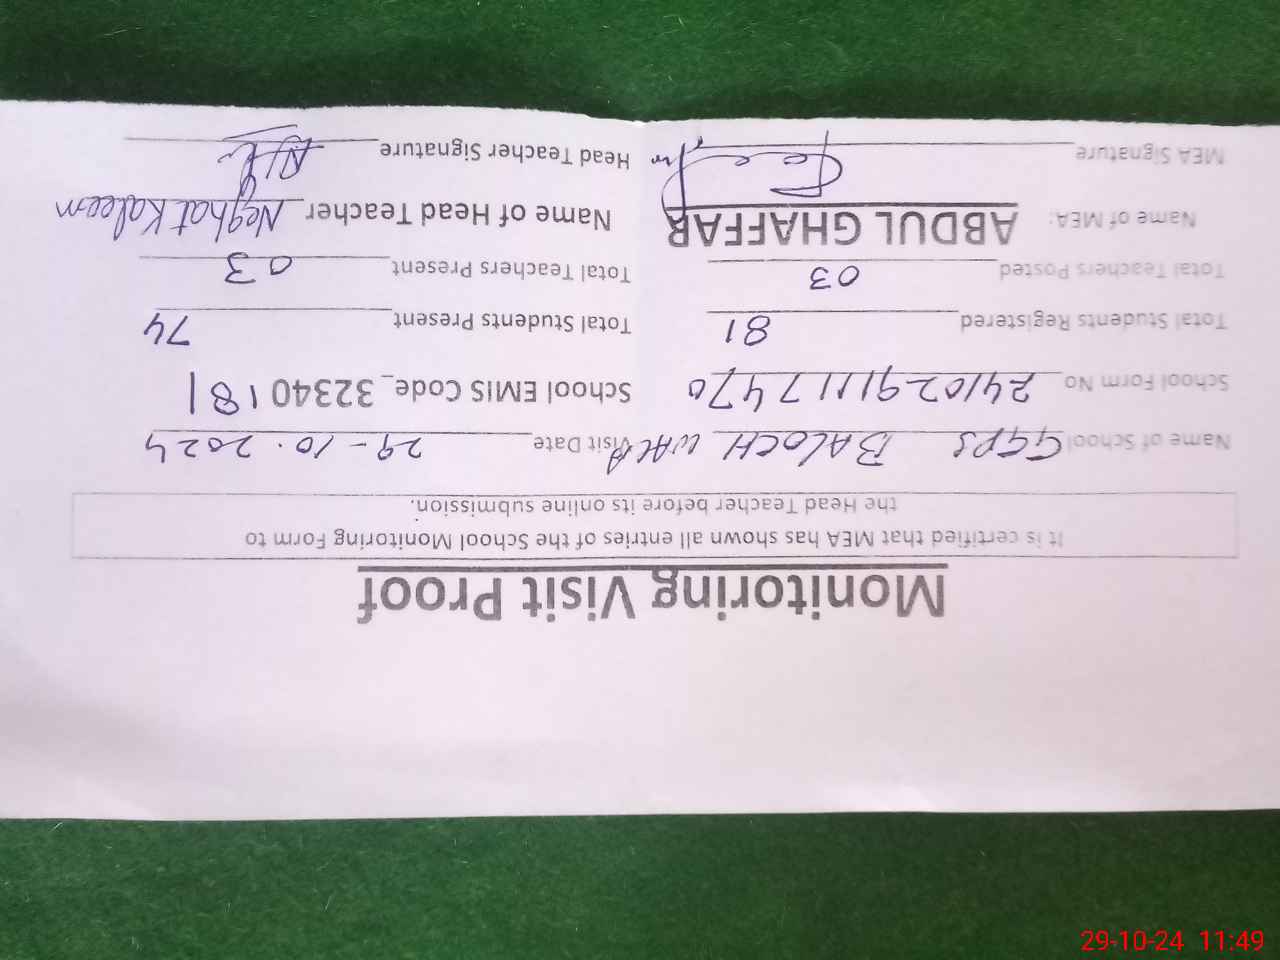 Monitoring Visit Proof
It is certified that MEA has shown all entries of the School Monitoring Form to
the Head Teacher before its online submission.
Name of School GGPS BALOCH WALA Visit Date 29-10.2024
School Form No 2410291117470 School EMIS Code_ 32340181
Total Students Registered 81 Total Students Present 74
Total Teachers Posted 03 Total Teachers Present 03
Name of MEA: ABDUL GHAFFAR Name of Head Teacher Neghat Kaleem
MEA Signature Head Teacher Signature
29-10-24 11:49